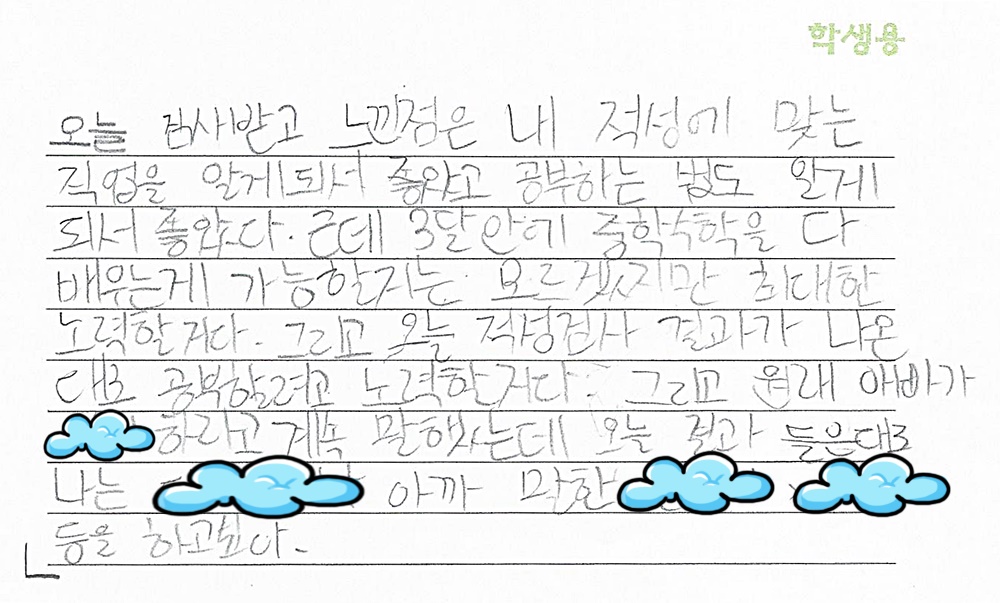 학생용
오늘 검사받고 느낀점은 내 적성에 맞는
직업을 알게되서 좋았고 공부하는 법도 알게
되서 좋았다. 근데 3달 안에 중학수학을 다
배우는게 가능할지는 모르겠지만 최대한
노력할거다. 그리고 오늘 적성검사 결과가 나온
대로 공부할려고 노력할거다. 그리고 원래 아빠가
하라고 계속 말했는데 오늘 결과 들은대로
나는 아까 말한
등을 하고싶다.